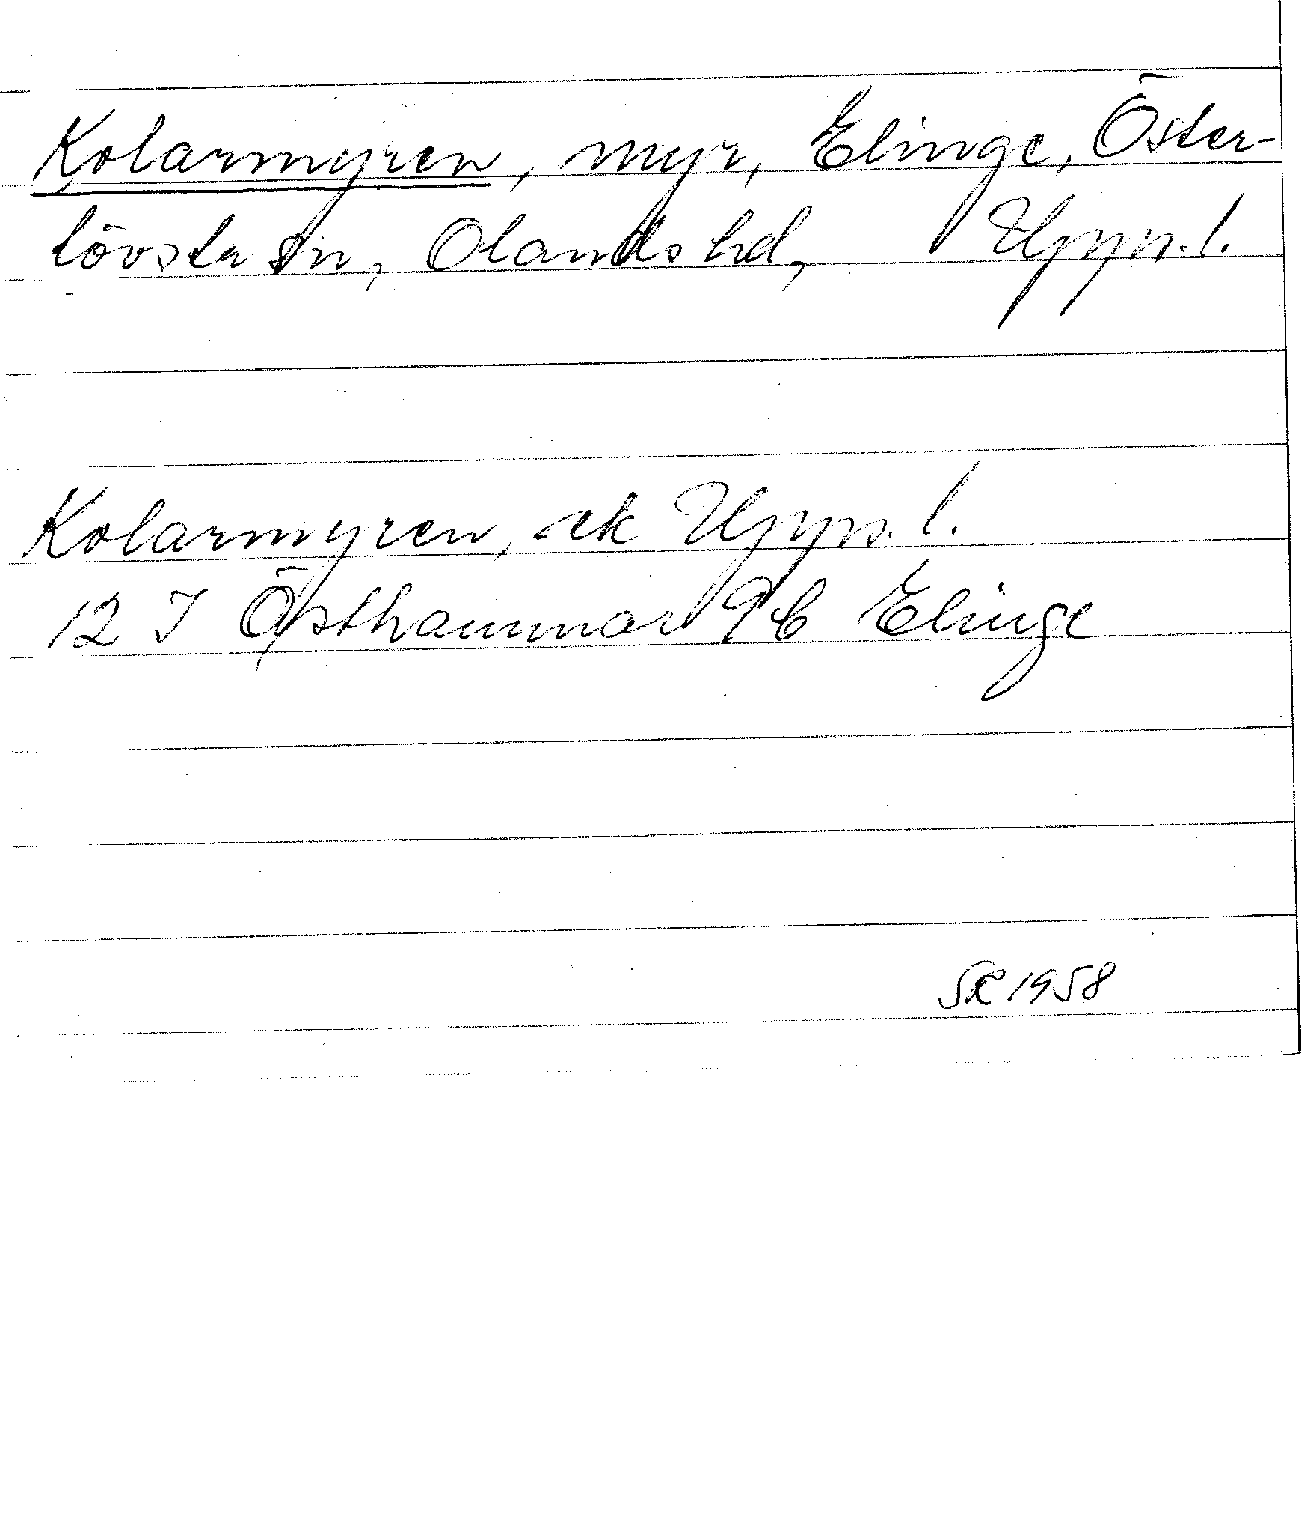 Kolarmyren, myr, Elinge, Öster-
lövsta sn, Olands hd, Upps. l.
Kolarmyren, ek Upps. l.
12 I Östhammar 9 b Elinge
SR 1958